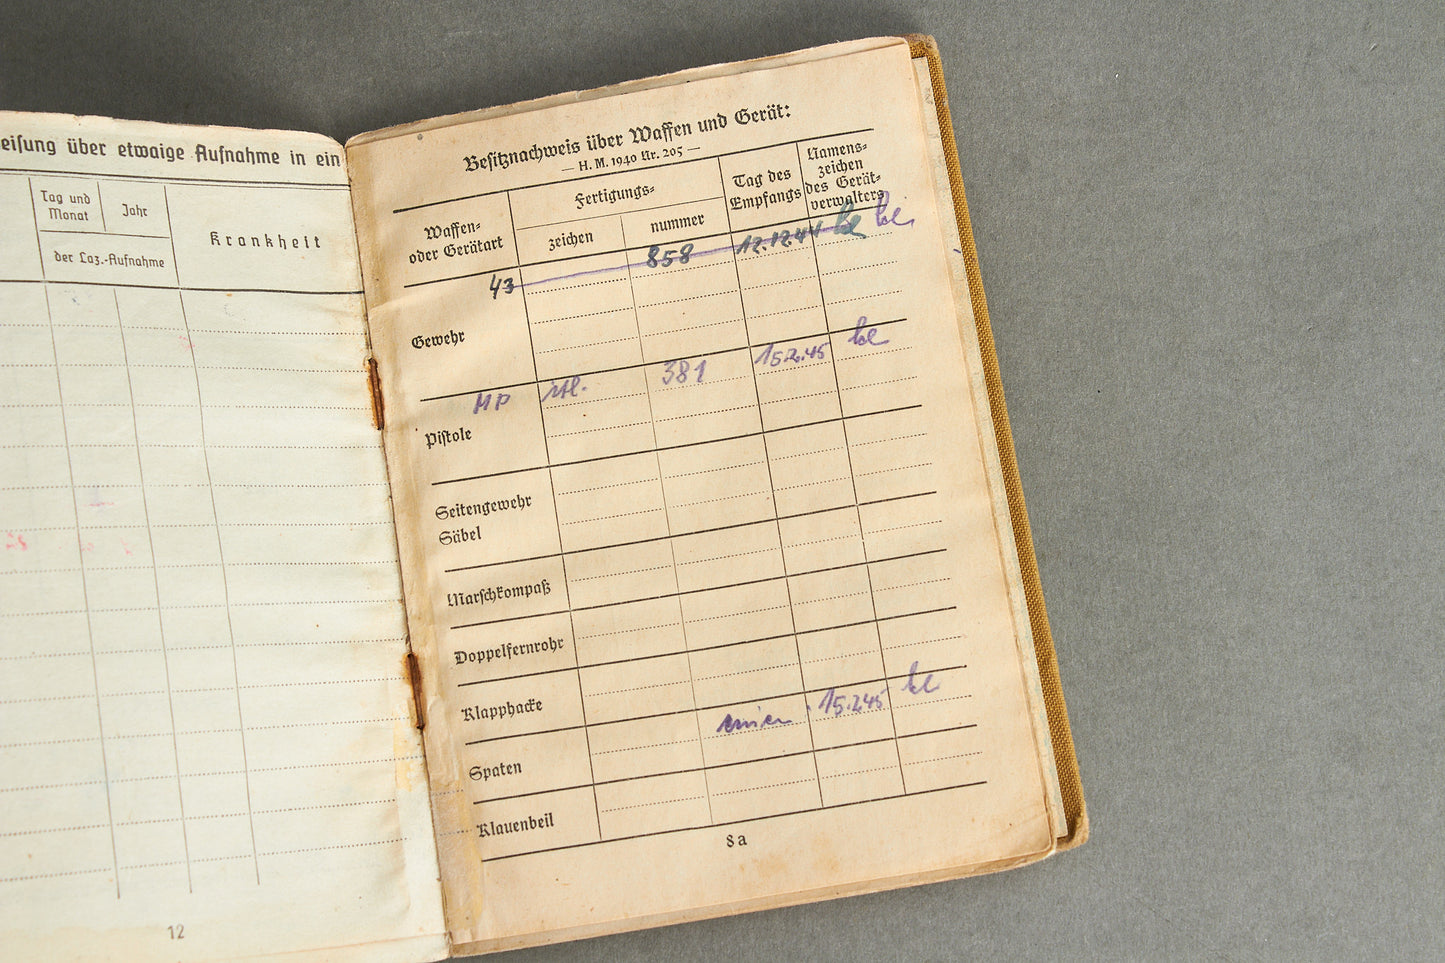 eisung über etwaige Aufnahme in ein
Tag und
Monat
Jahr
der Laz.-Aufnahme
Krankheit
12
Besitznachweis über Waffen und Gerät:
— H. M. 1940 Nr. 205 —
Waffen-
oder Gerätart
Fertigungs-
zeichen
nummer
Tag des
Empfangs
Namens-
zeichen
des Gerät-
verwalters
43 858 12.12.44
Gewehr
MP 381 15.2.45
Pistole
Seitengewehr
Säbel
Marschkompaß
Doppelfernrohr
Klapphacke
15.2.45
Spaten
Klauenbeil
8a